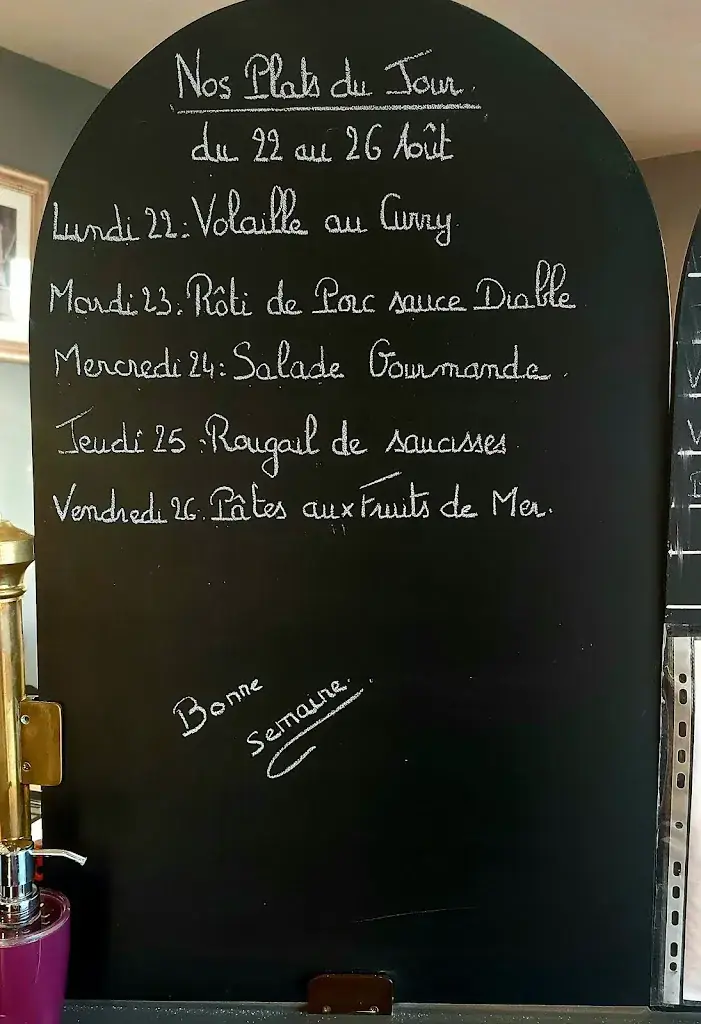 Nos Plats du Jour.
du 22 au 26 Août
Lundi 22: Volaille au Curry.
Mardi 23: Rôti de Porc sauce Diable
Mercredi 24: Salade Gourmande.
Jeudi 25: Rougail de saucisses.
Vendredi 26: Pâtes aux Fruits de Mer.
Bonne
semaine..